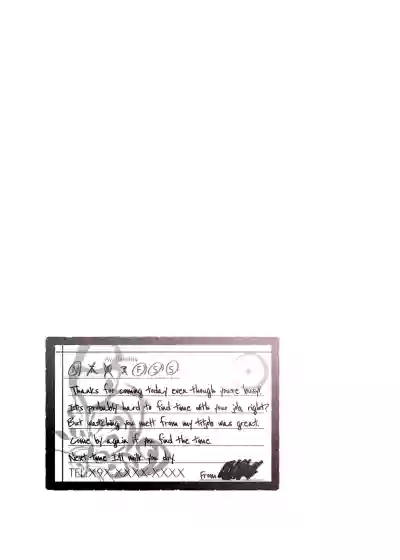 Thanks for coming today even though you're busy.
It's probably hard to find time with your job, right?
But watching you melt from my triple was great.
Come by again if you find the time.
Next time I'll milk you dry.
TEL X9X-XXXX-XXXX
From